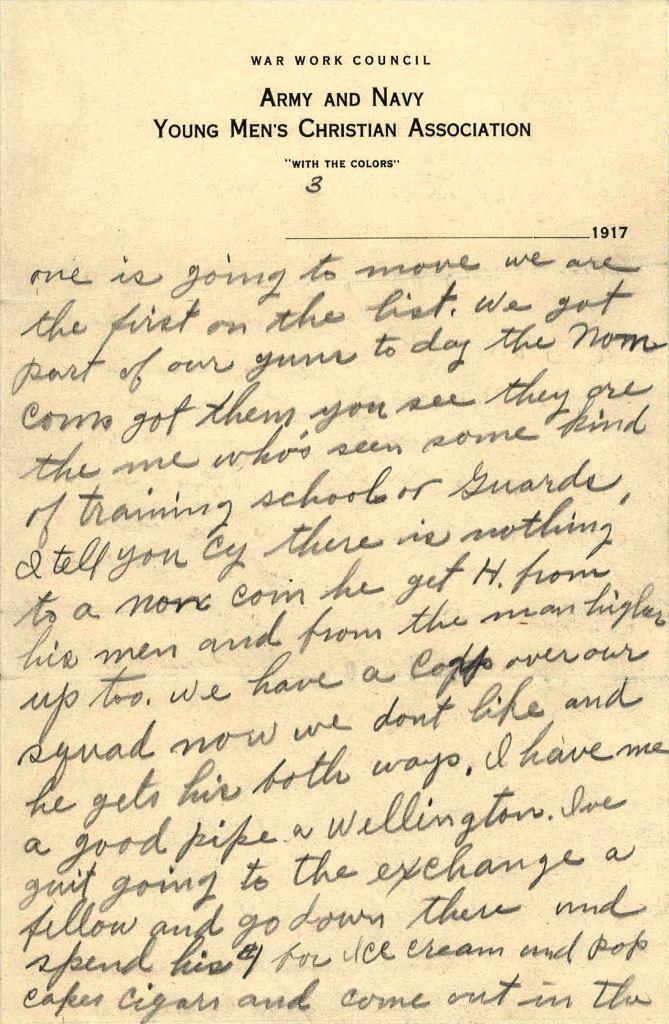 WAR WORK COUNCIL
ARMY AND NAVY
YOUNG MEN'S CHRISTIAN ASSOCIATION
"WITH THE COLORS"
3
1917
one is going to move we are
the first on the list. We got
part of our guns to day the Nom
coms got them you see they are
the me who's seen some kind
of training school or Guards,
I tell you Cy there is nothing
to a non com he get H. from
his men and from the man higher
up too. We have a over our
squad now we dont like and
he gets his both ways. I have me
a good pipe a Wellington. Ive
quit going to the exchange a
fellow and go down there and
spend his $1 for Ice cream and pop
cakes cigars and come out in the